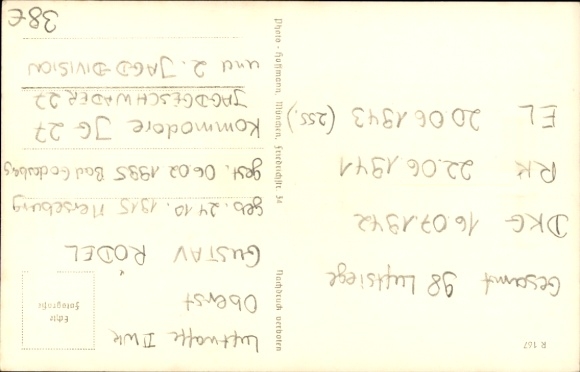 R 167
Gesamt 98 Luftsiege
DKG 16.07.1942
RK 22.06 1941
EL 20 06 1943 (255.)
Nachdruck verboten
Photo - Hoffmann, München, Friedrichstr. 34
Luftwaffe II WK
Echte
Fotografie
Oberst
GUSTAV RÖDEL
geb. 24 10. 1915 Merseburg
gest. 06 02 1995 Bad Godesberg
Kommodore JG 27
JAGDGESCHWADER 27
und 2. JAGD-DIVISION
38€